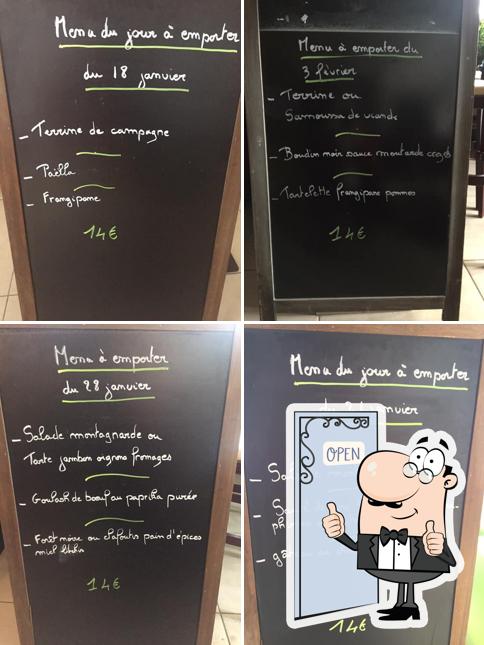 Menu du jour à emporter
du 18 janvier
- Terrine de campagne
- Paëlla
- Frangipane
14€
Menu à emporter du
3 février
- Terrine ou
Samoussa de viande
- Boudin noir sauce moutarde
- Tartelette frangipane pommes
14€
Menu à emporter
du 28 janvier
- Salade montagnarde ou
Tarte jambon oignons fromages
- Goulash de boeuf au paprika purée
- Forêt noire ou clafoutis pain d'épices
miel
14€
Menu du jour à emporter
OPEN
14€